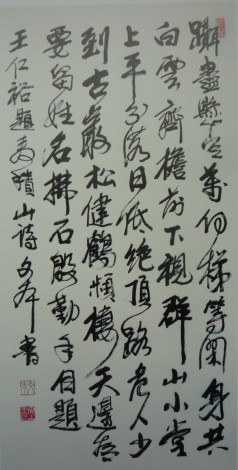 躡盡懸空萬仞梯等閑身共
白雲齊檐前下視群山小堂
上平分落日低絕頂路危人少
到古巖松健鶴頻棲天邊為
要留姓名拂石殷勤手自題
王仁裕題麥積山詩文書